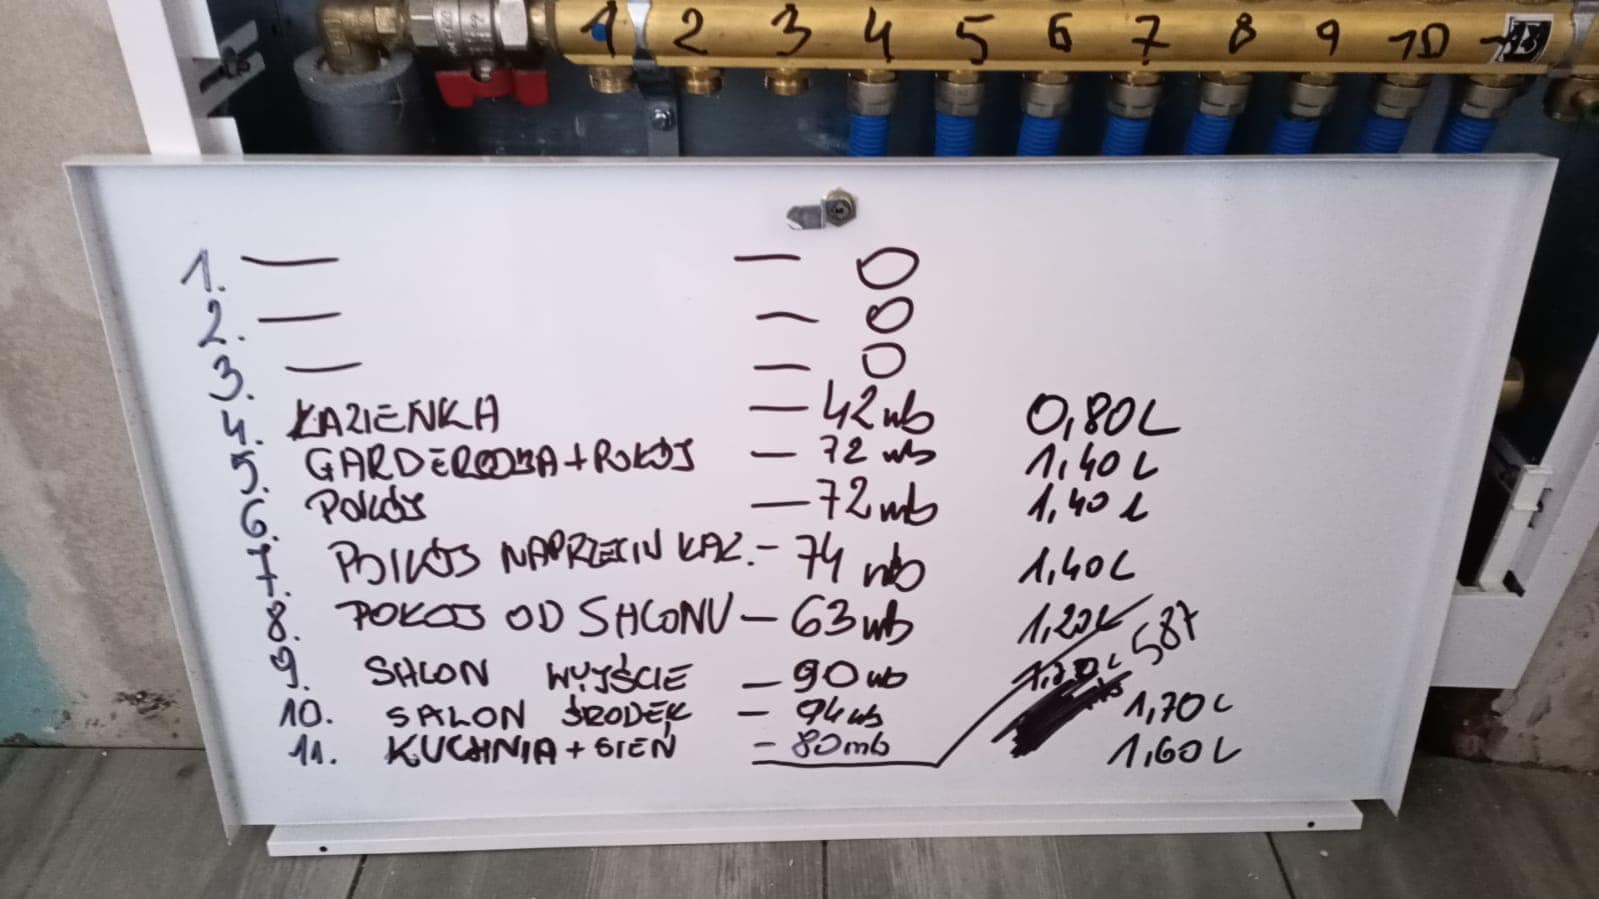 1 2 3 4 5 6 7 8 9 10
1. — — 0
2. — — 0
3. — — 0
4. ŁAZIENKA — 42 mb 0,80L
5. GARDEROBA + POKÓJ — 72 mb 1,40 L
6. POKÓJ — 72 mb 1,40 L
7. POKÓJ NAPRZECIW ŁAZ. - 74 mb 1,40L
8. POKÓJ OD SALONU — 63 mb 1,20L
587
9. SALON WYJŚCIE — 90 mb
10. SALON ŚRODEK — 94 mb 1,70L
11. KUCHNIA + SIEŃ - 80 mb 1,60L